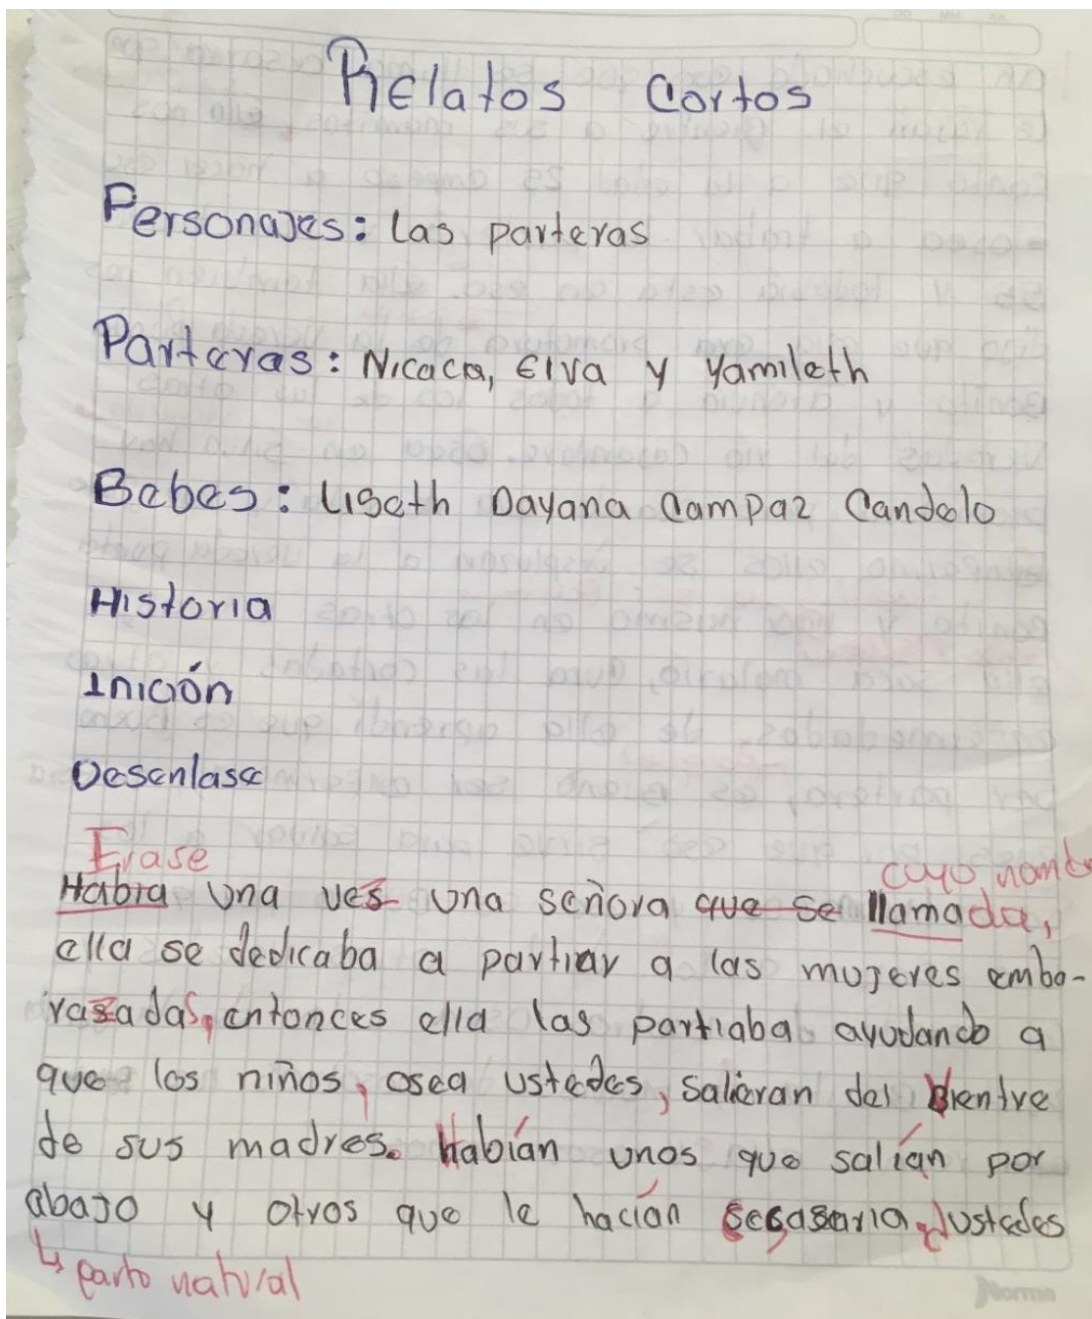 Relatos Cortos
Personajes: Las parteras
Parteras: Nicaca, Elva y Yamileth
Bebes: Liseth Dayana Campaz Candelo
Historia
Inición
Desenlase
Erase cuyo nomb
Había una ves una señora que se llamada,
ella se dedicaba a partiar a las mujeres emba-
razadas, entonces ella las partiaba ayudando a
que los niños, osea ustedes, salieran del vientre
de sus madres. Habían unos que salían por
abajo y otros que le hacían cesaria ¿ustedes
↳ parto natural
Norma